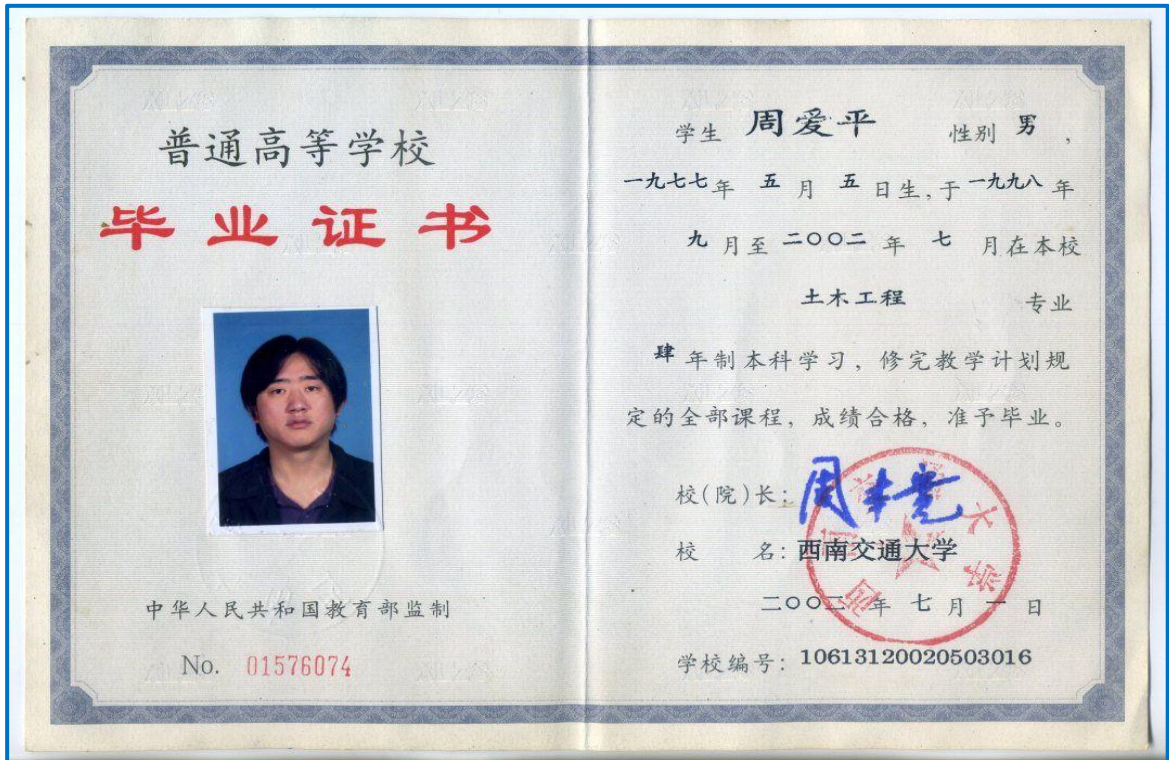 普通高等学校
毕业证书
中华人民共和国教育部监制
No. 01576074
学生 周爱平 性别 男,
一九七七年 五 月 五 日生,于 一九九八 年
九 月至 二〇〇二 年 七 月在本校
土木工程 专业
肆 年制本科学习, 修完教学计划规
定的全部课程, 成绩合格, 准予毕业。
校(院)长:
校 名: 西南交通大学
二〇〇二 年 七 月 一 日
学校编号: 10613120020503016
西南交通大学